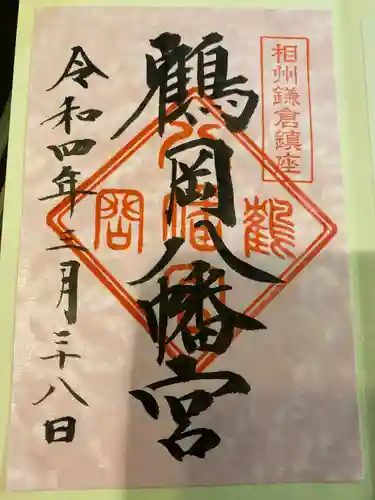 相州鎌倉鎮座
鶴岡八幡宮
鶴
八幡宮
岡
令和四年三月二十八日